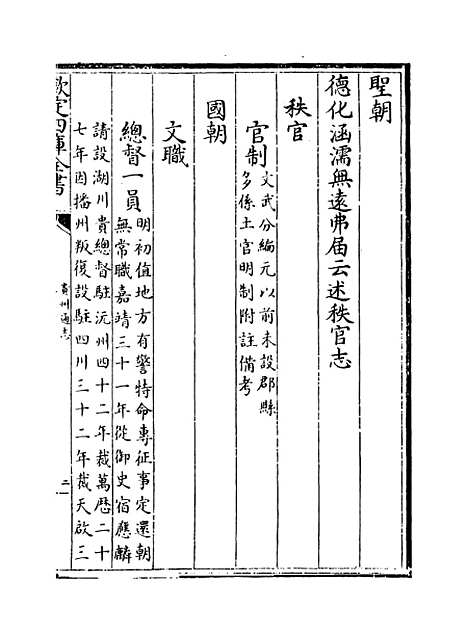 聖朝
德化涵濡無遠弗届云述秩官志
秩官
官制文武分編元以前未設郡縣
多係土官明制附註備考
國朝
文職
總督一員明初值地方有警特命專征事定還朝
無常職嘉靖三十一年從御史宿應麟
請設湖川貴總督駐沅州四十二年裁萬歴二十
七年因播州叛復設駐四川三十二年裁天啟三
欽定四庫全書
貴州通志